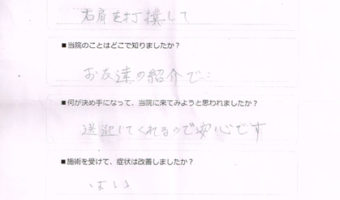 右肩を打撲して
■当院のことはどこで知りましたか？
お友達の紹介で
■何が決め手になって、当院に来てみようと思われましたか？
送迎してくれるので安心です
■施術を受けて、症状は改善しましたか？
はい